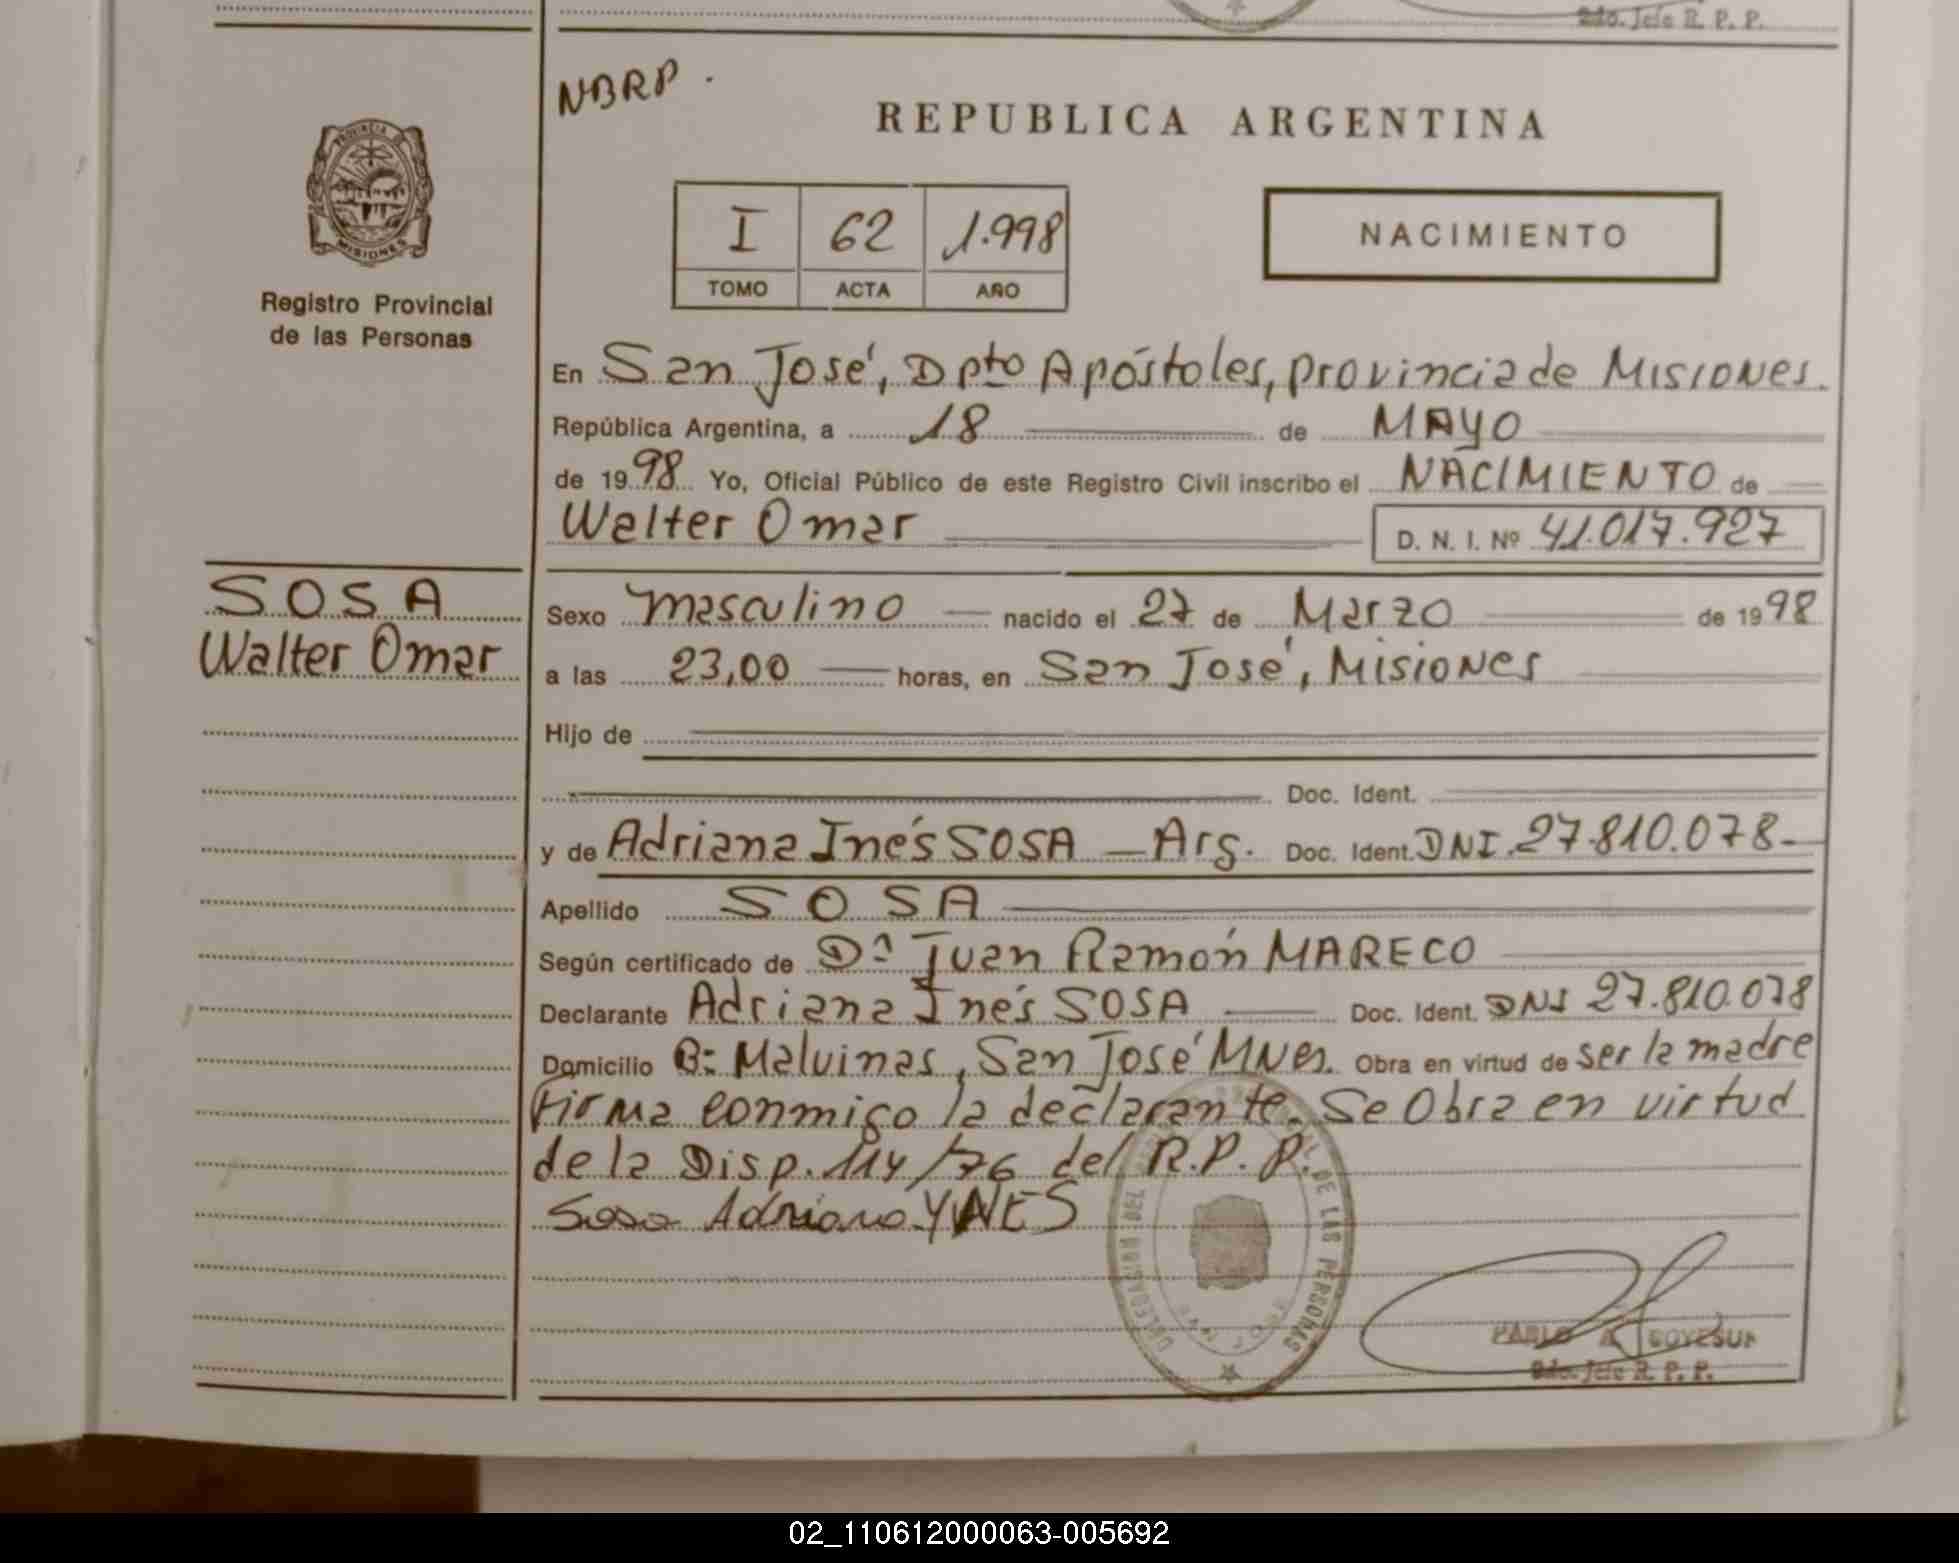 2do. Jefe R. P. P.
NBRP.
REPUBLICA ARGENTINA
PROVINCIA DE
MISIONES
Registro Provincial
de las Personas
I 62 1.998
TOMO ACTA AÑO
NACIMIENTO
En San José, Dpto Apóstoles, provincia de Misiones.
República Argentina, a 18 de MAYO
de 1998 Yo, Oficial Público de este Registro Civil inscribo el NACIMIENTO de
Walter Omar D. N. I. Nº 41.017.927
SOSA
Walter Omar
Sexo masculino nacido el 27 de Marzo de 1998
a las 23,00 horas, en San José, Misiones
Hijo de
Doc. Ident.
y de Adriana Inés SOSA - Arg. Doc. Ident. DNI. 27.810.078-
Apellido SOSA
Según certificado de Dº Juan Ramón MARECO
Declarante Adriana Inés SOSA Doc. Ident. DNI 27.810.078
Domicilio Bº Malvinas, San José Mnes. Obra en virtud de ser la madre
Firma conmigo la declarante. Se Obra en virtud
de la Disp. 114/76 del R.P.P.
Sosa Adriana YNES
DELEGACION DEL REGISTRO PROVINCIAL DE LAS PERSONAS
SAN JOSE
PABLO A.
2do. Jefe R. P. P.
02_110612000063-005692